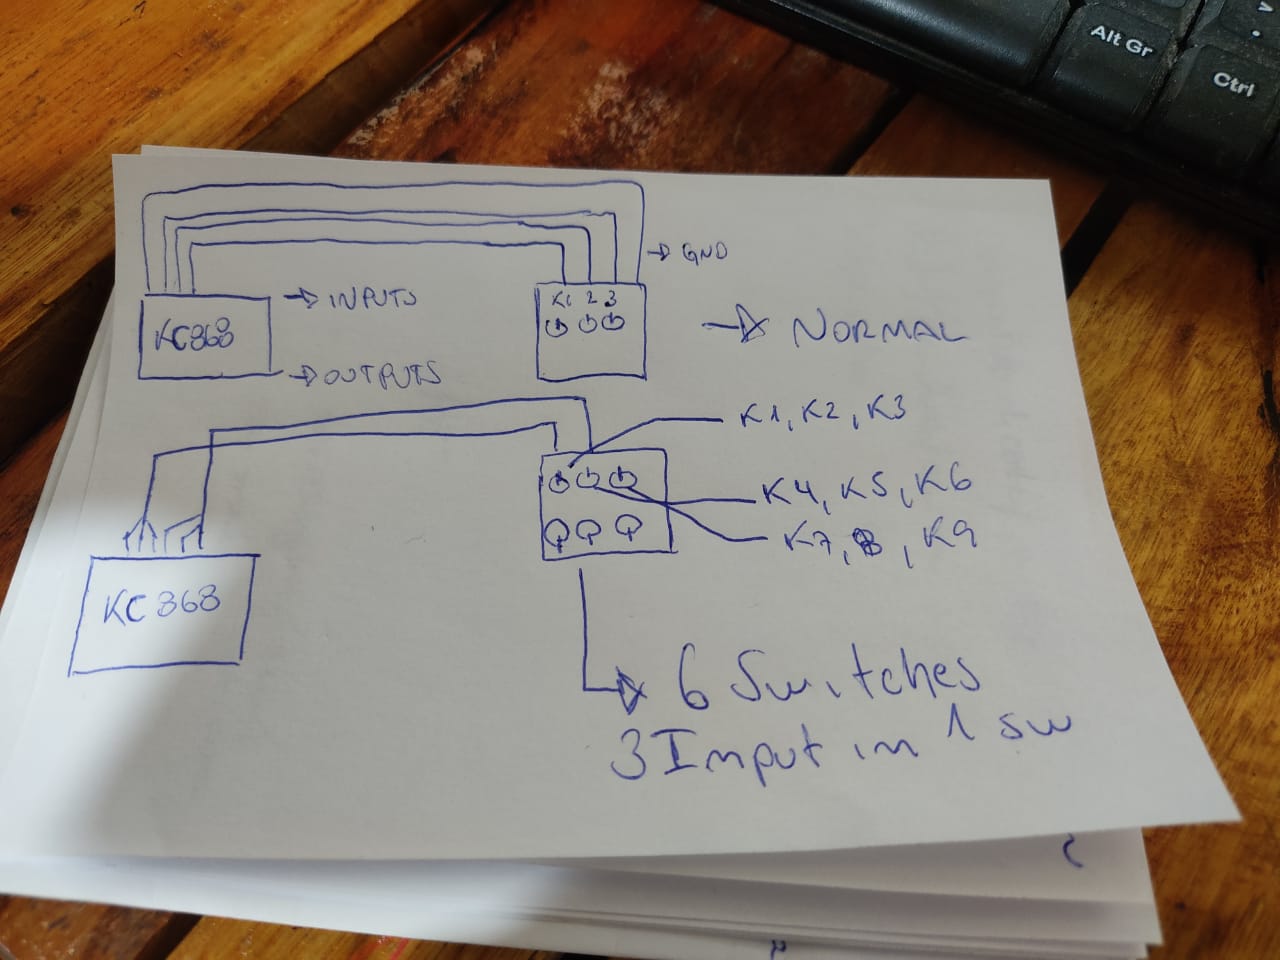 Alt Gr
Ctrl
→ GND
→ INPUTS
K1 2 3
KC868
→ NORMAL
→ OUTPUTS
K1, K2, K3
K4, K5, K6
K7, 8, K9
KC868
→ 6 Switches
3 Input in 1 sw